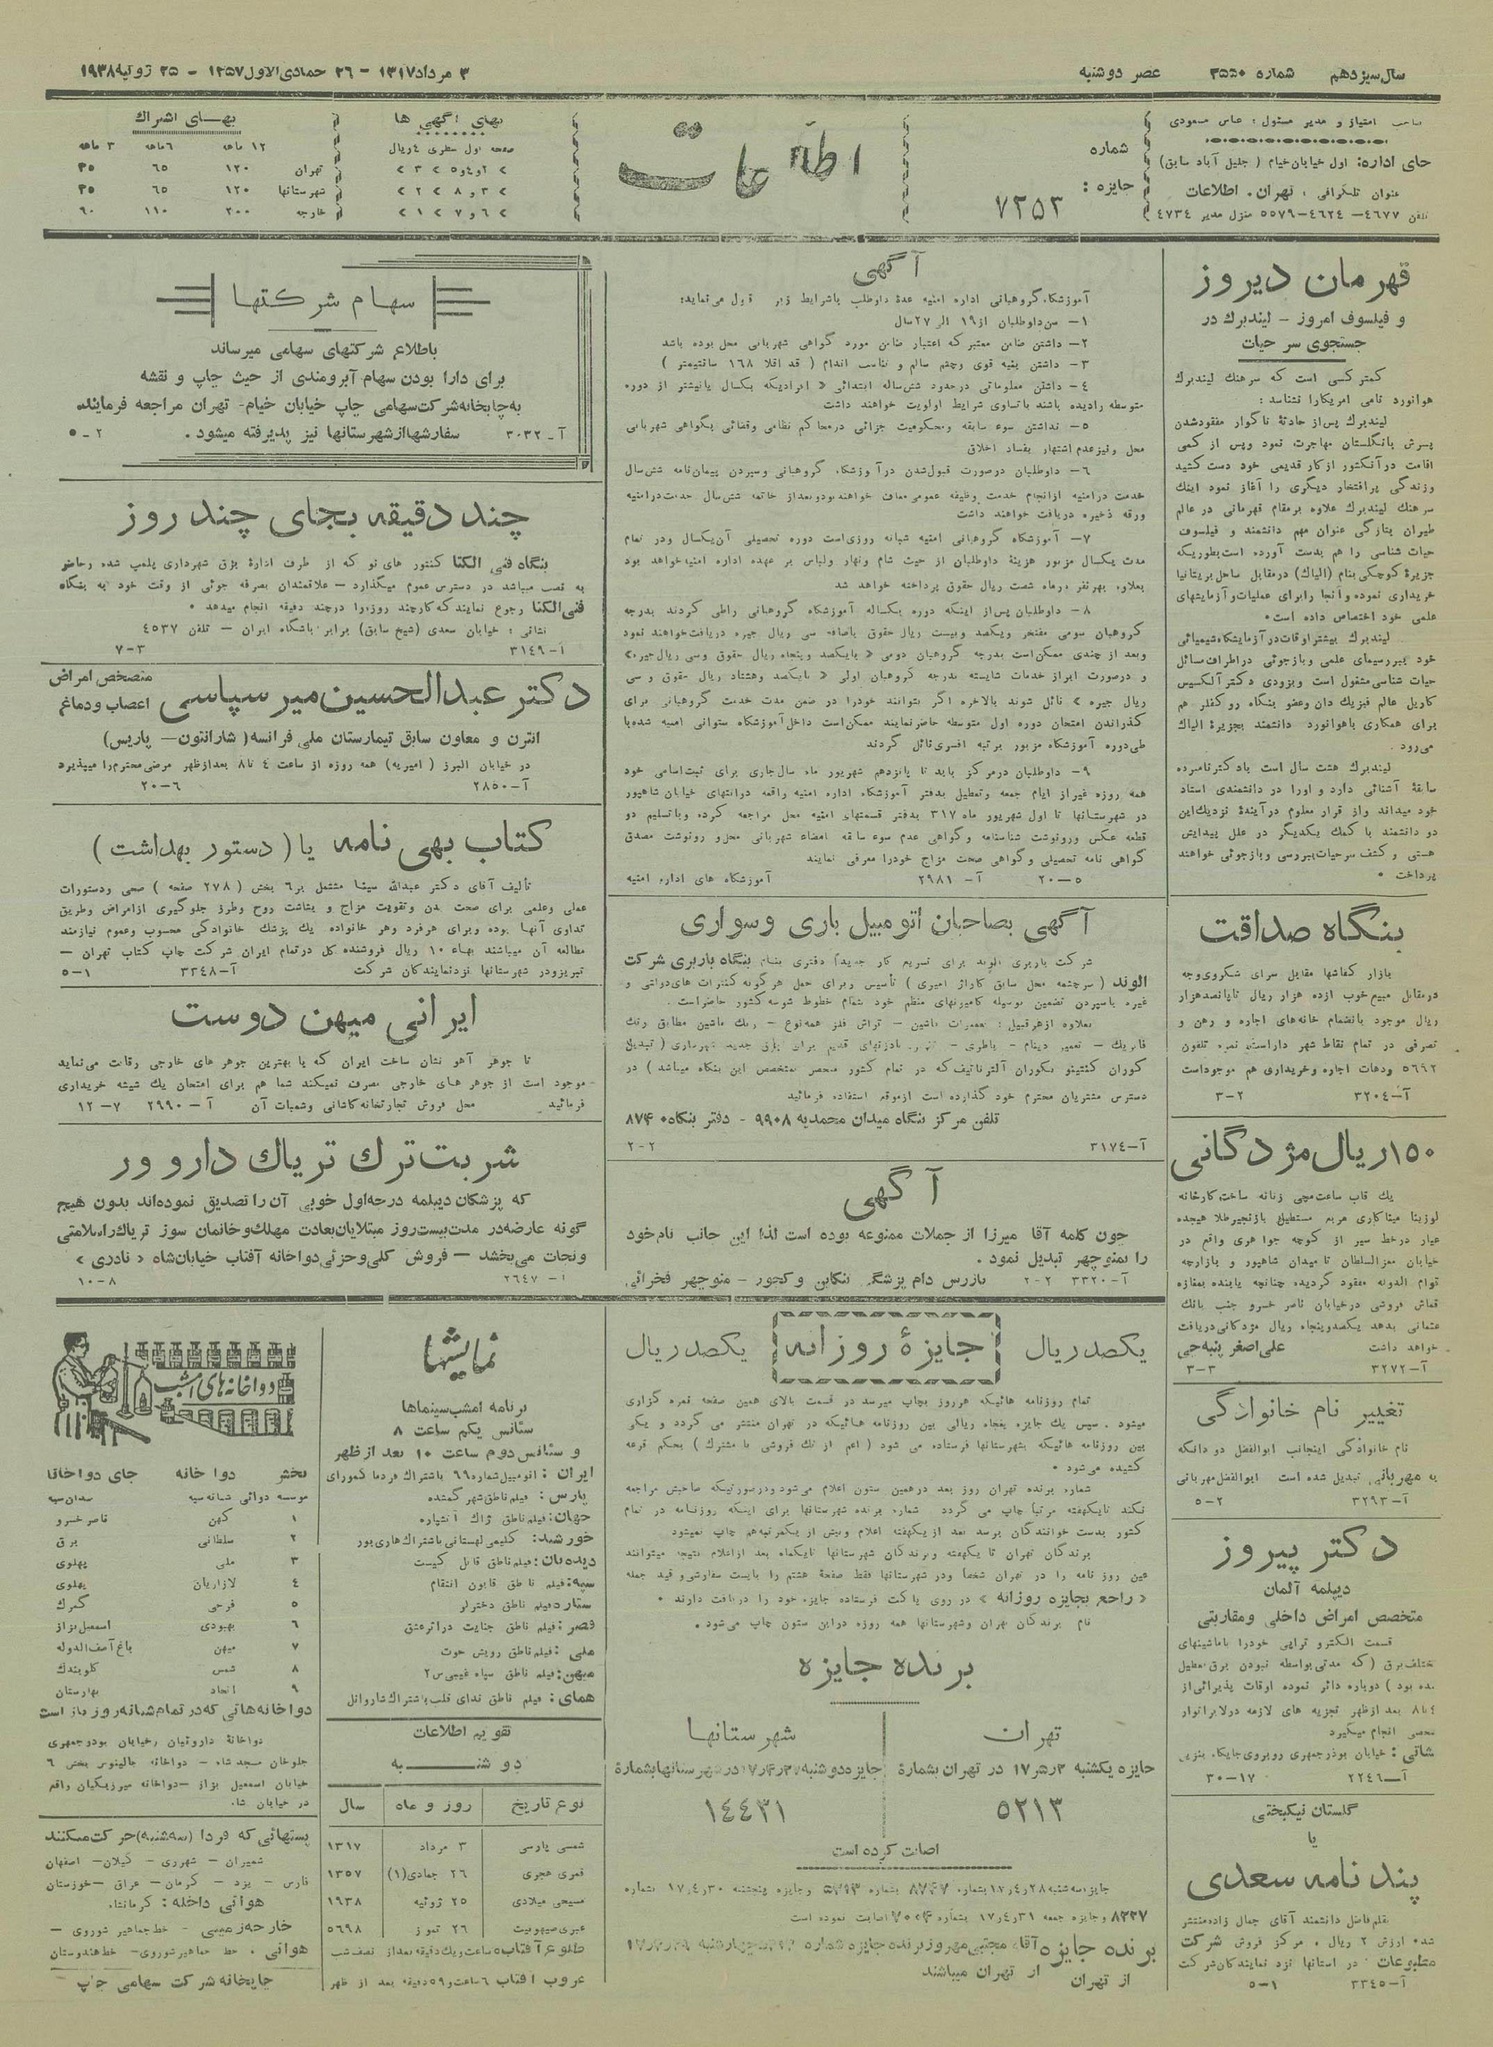 سال سیزدهم شماره ۳۵۵۰ عصر دوشنبه ۳ مرداد ۱۳۱۷ - ۲۶ جمادی الاول ۱۳۵۷ - ۲۵ ژوئیه ۱۹۳۸
صاحب امتیاز و مدیر مسئول : عباس مسعودی
جای اداره: اول خیابان خیام ( جلیل آباد سابق)
عنوان تلگرافی : تهران. اطلاعات
تلفن ۴۶۷۷ - ۴۶۲۴-۵۵۷۹ منزل مدیر ۴۷۳۴
شماره
جایزه : ۷۲۵۳
اطلاعات
بهای آگهی ها
صفحه اول سطری ۴ ریال
بهـــای اشتراك
۱۲ ماهه ۶ ماهه ۳ ماهه
تهران ۱۲۰ ۶۵ ۳۵
شهرستانها ۱۲۰ ۶۵ ۳۵
خارجه ۲۰۰ ۱۱۰ ۶۰
قهرمان دیروز
و فیلسوف امروز - لیندبرك در
جستجوی سر حیات
کمتر کسی است که سرهنك لیندبرك
هوانورد نامی امریکارا نشناسد :
لیندبرك پس از حادثهٔ ناگوار مفقودشدن
پسرش بانگلستان مهاجرت نمود وپس از کمی
اقامت در آنکشور از کار قدیمی خود دست کشید
وزندگی پرافتخار دیگری را آغاز نمود اینك
سرهنك لیندبرك علاوه برمقام قهرمانی در عالم
طیران بتازگی عنوان مهم دانشمند و فیلسوف
حیات شناسی را هم بدست آورده است بطوریکه
جزیرهٔ کوچکی بنام (الیاك) درمقابل ساحل بریتانیا
خریداری نموده و آنجا را برای عملیات و آزمایشهای
علمی خود اختصاص داده است.
لیندبرك بیشتر اوقات در آزمایشگاه شیمیائی
خود ببررسیهای علمی وبازجوئی دراطراف مسائل
حیات شناسی مشغول است وبزودی دکتر آلکسیس
کاریل عالم فیزیك دان وعضو بنگاه روکفلر هم
برای همکاری باهوانورد دانشمند بجزیرهٔ الیاك
می رود.
لیندبرك هشت سال است بادکتر نامبرده
سابقهٔ آشنائی دارد و اورا در دانشمندی استاد
خود میداند واز قرار معلوم در آیندهٔ نزدیك این
دو دانشمند با کمك یکدیگر در علل پیدایش
هستی و کشف سرحیات بررسی وبازجوئی خواهند
پرداخت .
بنگاه صداقت
بازار کفاشها مقابل سرای شکروی وجه
درمقابل مبیع خوب ازده هزار ریال تا پانصد هزار
ریال موجود بانضمام خانه های اجاره و رهن و
تصرفی در تمام نقاط شهر داراست نمره تلفون
۵۶۹۲ ودهات اجاره وخریداری هم موجوداست
آ-۳۲۰۴ ۲-۳
۱۵۰ ریال مژدگانی
یك قاب ساعت مچی زنانه ساخت کارخانه
لوزینا میناکاری مربع مستطیل بازنجیر طلا هیجده
عیار درخط سیر از کوچه جواهری واقع در
خیابان معزالسلطان تا میدان شاهپور و بازارچه
قوام الدوله مفقود گردیده چنانچه یابنده بمغازه
قماش فروشی درخیابان ناصر خسرو جنب بانك
عثمانی بدهد یکصدوپنجاه ریال مژدگانی دریافت
خواهد داشت علی اصغر پنبه چی
آ-۳۲۷۲ ۳-۳
تغییر نام خانوادگی
نام خانوادگی اینجانب ابوالفضل دو دانگه
به مهربانی تبدیل شده است ابوالفضل مهربانی
آ-۳۲۹۳ ۲-۵
دکتر پیروز
دیپلمه آلمان
متخصص امراض داخلی و مقاربتی
قسمت الکترو تراپی خودرا باماشینهای
مختلف برق (که مدتی بواسطه نبودن برق معطیل
شده بود) دوباره دائر نموده اوقات پذیرائی از
۴ تا ۸ بعد ازظهر تجزیه های لازمه درلابراتوار
شخصی انجام میگیرد
آ-۲۲۴۶ ۱۷-۳۰
گلستان نیکبختی
یا
پند نامه سعدی
بقلم فاضل دانشمند آقای جمال زاده منتشر
شد، ارزش ۲ ریال . مرکز فروش شرکت
مطبوعات - در استانها نزد نمایندگان شرکت
آ-۳۳۴۵ ۱-۵
آگهی
آموزشگاه گروهبانی اداره امنیه عدهٔ داوطلب باشرایط زیر قبول می نماید:
۱- سن داوطلبان از ۱۹ الی ۲۷ سال
۲- داشتن ضامن معتبر که اعتبار ضامن مورد گواهی شهربانی محل بوده باشد
۳- داشتن بنیه قوی وچشم سالم و تناسب اندام ( قد اقلا ۱۶۸ سانتیمتر )
۴- داشتن معلوماتی درحدود شش ساله ابتدائی « افرادیکه یکسال یابیشتر از دوره
متوسطه رادیده باشند باتساوی شرایط اولویت خواهند داشت
۵- نداشتن سوء سابقه ومحکومیت جزائی درمحاکم نظامی وقضائی بگواهی شهربانی
محل ونیز عدم اشتهار بفساد اخلاق
۶- داوطلبان درصورت قبول شدن در آموزشگاه گروهبانی وسپردن پیمان نامه شش سال
خدمت در امنیه ازانجام خدمت وظیفه عمومی معاف خواهند بود وبعد از خاتمه شش سال خدمت در امنیه
ورقه ذخیره دریافت خواهند داشت
۷- آموزشگاه گروهبانی امنیه شبانه روزی است دوره تحصیلی آن یکسال ودر تمام
مدت یکسال مزبور هزینهٔ داوطلبان از حیث شام ونهار ولباس بر عهده اداره امنیه خواهد بود
بعلاوه بهر نفر درماه شصت ریال حقوق پرداخته خواهد شد
۸- داوطلبان پس از اینکه دوره یکساله آموزشگاه گروهبانی راطی کردند بدرجه
گروهبان سومی مفتخر ویکصد وبیست ریال حقوق باضافه سی ریال جیره دریافت خواهند نمود
وبعد از چندی ممکن است بدرجه گروهبان دومی « بایکصد وپنجاه ریال حقوق وسی ریال جیره»
و درصورت ابراز خدمات شایسته بدرجه گروهبان اولی « بایکصد وهشتاد ریال حقوق و سی
ریال جیره » نائل شوند بالاخره اگر بتوانند خودرا در ضمن مدت خدمت گروهبانی برای
گذراندن امتحان دوره اول متوسطه حاضر نمایند ممکن است داخل آموزشگاه ستوانی امنیه شده با
طی دوره آموزشگاه مزبور برتبه افسری نائل گردند
۹- داوطلبان درمرکز باید تا پانزدهم شهریور ماه سال جاری برای ثبت اسامی خود
همه روزه غیر از ایام جمعه وتعطیل بدفتر آموزشگاه اداره امنیه واقعه درانتهای خیابان شاهپور
در شهرستانها تا اول شهریور ماه ۳۱۷ بدفتر قسمتهای امنیه محل مراجعه کرده وباتسلیم دو
قطعه عکس ورونوشت شناسنامه وگواهی عدم سوء سابقه امضاء شهربانی محل و رونوشت مصدق
گواهی نامه تحصیلی وگواهی صحت مزاج خودرا معرفی نمایند
۵-۲۰ آ-۲۹۸۱ آموزشگاه های اداره امنیه
آگهی بصاحبان اتومبیل باری وسواری
شرکت باربری الوند برای تسریع کار جدیداً دفتری بنام بنگاه باربری شرکت
الوند ( سرچشمه محل سابق گاراژ امیری ) تأسیس وبرای حمل هرگونه کنترات های دولتی و
غیره باسپردن تضمین بوسیله کامیونهای منظم خود بتمام خطوط شوسه کشور حاضراست.
بعلاوه ازهرقبیل : تعمیرات ماشین - تراش فلز همه نوع - رنك ماشین مطابق رنك
دسترس مشتریان محترم خود گذارده است ازموقع استفاده فرمائید
تلفن مرکز بنگاه میدان محمدیه ۹۹۰۸ - دفتر بنگاه ۸۷۴۰
آ-۳۱۷۴ ۲-۲
آگهی
چون کلمه آقا میرزا از جملات ممنوعه بوده است لذا این جانب نام خود
را بمنوچهر تبدیل نمود.
آ-۳۳۲۰ ۲-۲ بازرس دام پزشگی تنکابن وکجور - منوچهر فخرائی
سهام شرکتها
باطلاع شرکتهای سهامی میرساند
برای دارا بودن سهام آبرومندی از حیث چاپ و نقشه
به چاپخانه شرکت سهامی چاپ خیابان خیام- تهران مراجعه فرمایند
آ-۳۰۳۲ سفارشها از شهرستانها نیز پذیرفته میشود. ۲-۵
چند دقیقه بجای چند روز
بنگاه فنی الکتا کنتور های نو که از طرف ادارهٔ برق شهرداری پلمپ شده وحاضر
به نصب میباشد در دسترس عموم میگذارد - علاقمندان بصرفه جوئی از وقت خود به بنگاه
فنی الکتا رجوع نمایند که کار چند روز را درچند دقیقه انجام میدهد .
نشانی : خیابان سعدی (شیخ سابق) برابر باشگاه ایران - تلفن ۴۵۳۷
آ-۳۱۴۹ ۳-۷
دکتر عبدالحسین میر سپاسی متخصص امراض
اعصاب ودماغ
انترن و معاون سابق تیمارستان ملی فرانسه (شارانتون- پاریس)
در خیابان البرز ( امیریه) همه روزه از ساعت ۴ تا ۸ بعد ازظهر مرضی محترم را میپذیرد
آ-۲۸۵۰ ۶-۲۰
کتاب بهی نامه یا ( دستور بهداشت )
تألیف آقای دکتر عبدالله سینا مشتمل بر ۶ بخش ( ۲۷۸ صفحه ) صحی ودستورات
عملی وعلمی برای صحت بدن وتقویت مزاج و بشاشت روح وطرز جلوگیری ازامراض وطریق
تداوی آنها بوده وبرای هرفرد وهر خانواده یك پزشك خانوادگی محسوب وعموم نیازمند
مطالعه آن میباشند بهاء ۱۰ ریال فروشنده کل درتمام ایران شرکت چاپ کتاب تهران -
تبریز ودر شهرستانها نزد نمایندگان شرکت آ-۳۳۴۸ ۱-۵
ایرانی میهن دوست
تا جوهر آهو نشان ساخت ایران که با بهترین جوهر های خارجی رقابت می نماید
موجود است از جوهر های خارجی مصرف نمیکند شما هم برای امتحان یك شیشه خریداری
فرمائید محل فروش تجارتخانه کاشانی وشعبات آن آ-۲۹۹۰ ۷-۱۲
شربت ترك تریاك دارو ور
که پزشکان دیپلمه درجه اول خوبی آن را تصدیق نموده اند بدون هیچ
گونه عارضه در مدت بیست روز مبتلایان بعادت مهلك وخانمان سوز تریاك راسلامتی
ونجات می بخشد - فروش کلی وجزئی دواخانه آفتاب خیابان شاه « نادری »
آ-۲۶۴۷ ۸-۱۰
یکصد ریال جایزهٔ روزانه یکصد ریال
تمام روزنامه هائیکه هرروز بچاپ میرسد در قسمت بالای همین صفحه نمره گزاری
میشود . سپس یك جایزه پنجاه ریالی بین روزنامه هائیکه در تهران منتشر می گردد و یکی
بین روزنامه هائیکه بشهرستانها فرستاده می شود ( اعم از تك فروشی یا مشترك ) بحکم قرعه
کشیده می شود .
شماره برنده تهران روز بعد درهمین ستون اعلام می شود ودرصورتیکه صاحبش مراجعه
نکند تایکهفته مرتبا چاپ می گردد شماره برنده شهرستانها برای اینکه روزنامه در تمام
کشور بدست خوانندگان برسد بعد از یکهفته اعلام وبیش از یکمرتبه هم چاپ نمیشود
برندگان تهران تا یکهفته وبرندگان شهرستانها تایکماه بعد ازاعلام نتیجه میتوانند
عین روز نامه را در تهران شخصاً ودر شهرستانها فقط صفحهٔ هشتم را بایست سفارشی وقید جمله
« راجع بجایزه روزانه » در روی پاکت فرستاده جایزه خود را دریافت دارند .
نام برندگان تهران وشهرستانها همه روزه دراین ستون چاپ می شود .
برنده جایزه
تهران
جایزه یکشنبه ۲ر۵ر۱۷ در تهران بشمارهٔ
۵۲۱۳
شهرستانها
۱۴۴۳۱
اصابت کرده است
از تهران میباشند
از تهران
نمایشها
برنامه امشب سینماها
سئانس یکم ساعت ۸
و سئانس دوم ساعت ۱۰ بعد از ظهر
ایران : اتومبیل شماره ۹۹ باشتراك فردما کمورای
پارس : فیلم ناطق شهر گمشده
جهان: فیلم ناطق ژاك آتشپاره
خورشید: کلیمی لهستانی باشتراك هاری بور
دیده بان: فیلم ناطق قاتل کیست
سپه: فیلم ناطق قانون انتقام
ستاره فیلم ناطق دختر لر
قصر: فیلم ناطق جنایت دراثر عشق
ملی: فیلم ناطق رویش حوت
میهن: فیلم ناطق سپاه غیبی س۲
همای: فیلم ناطق ندای قلب باشتراك شاربوانل
تقویم اطلاعات
دو شنبــه
نوع تاریخ روز و ماه سال
شمسی پارسی ۳ مرداد ۱۳۱۷
قمری هجری ۲۶ جمادی(۱) ۱۳۵۷
مسیحی میلادی ۲۵ ژوئیه ۱۹۳۸
عبری صیهونیت ۲۶ تموز ۵۶۹۸
غروب آفتاب ۶ ساعت و ۵۹ دقیقه بعد از ظهر
دواخانه های امشب
بخش دواخانه جای دواخانه
۱ کهن ناصر خسرو
۲ سلطانی برق
۳ ملی پهلوی
۴ لازاریان پهلوی
۵ فرحی گمرك
۶ بهبودی اسمعیل بزاز
۷ میهن باغ آصف الدوله
۸ شمس گلوبندك
۹ اتحاد بهارستان
دواخانه هائی که در تمام شبانه روز باز است
جلوخان مسجد شاه - دواخانه جالینوس بخش ۶
خیابان اسمعیل بزاز - دواخانه میرزیکیان واقع
در خیابان شاه.
پستهائی که فردا (سه شنبه) حرکت میکنند
شمیران - شهرری - گیلان - اصفهان
فارس - یزد - کرمان - عراق - خوزستان
هوائی داخله : کرمانشاه
خارجه زمینی - خط جماهیر شوروی -
هوائی . خط جماهیر شوروی - خط هندوستان
چاپخانه شرکت سهامی چاپ